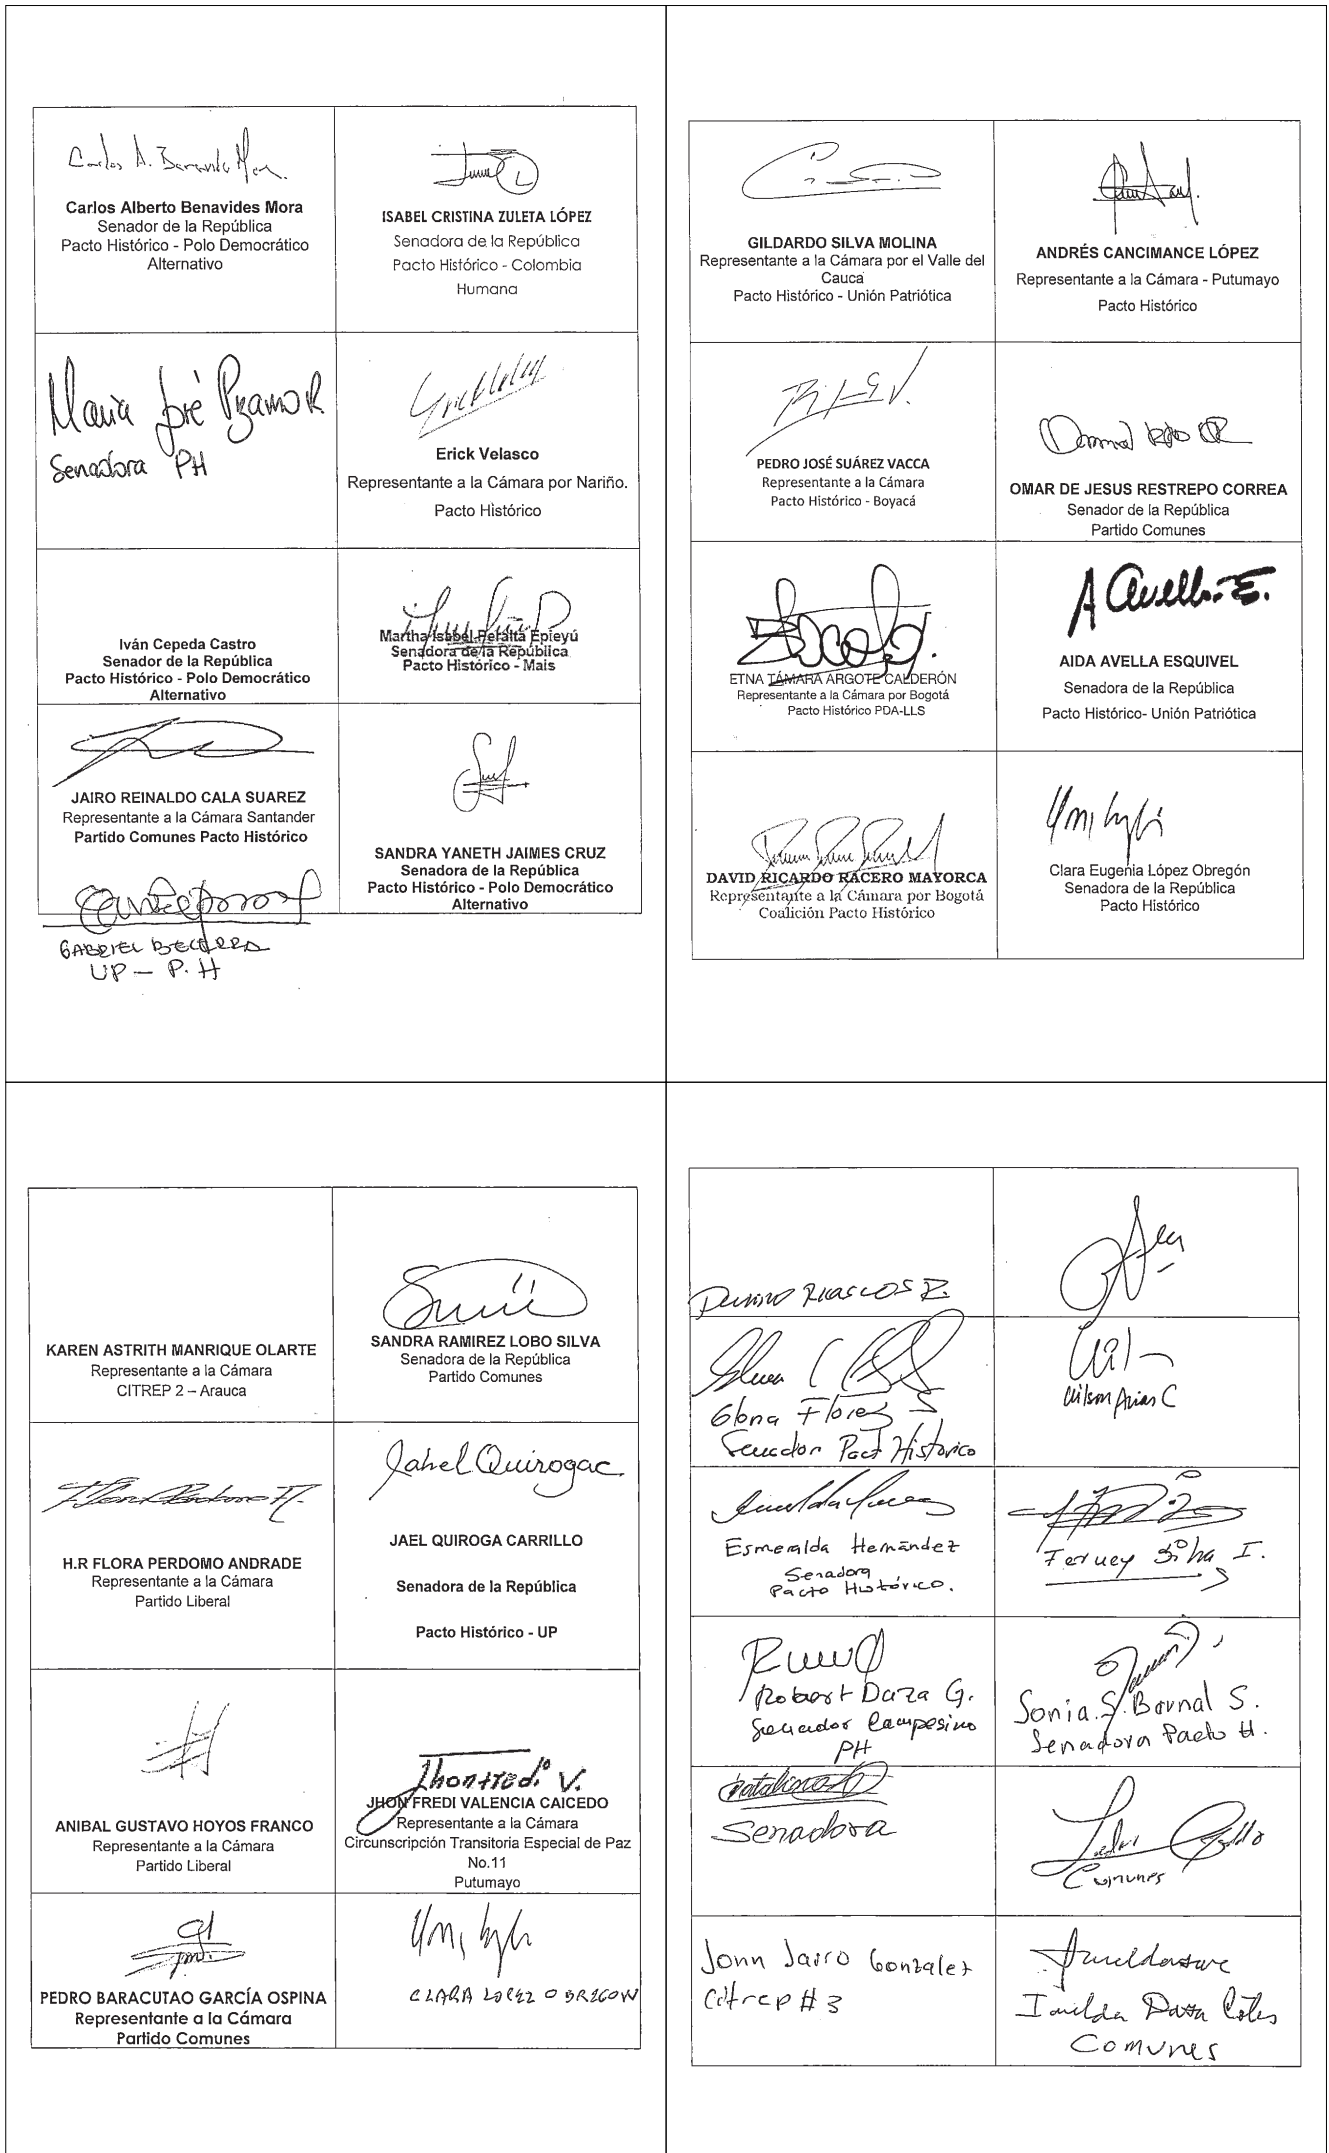 Carlos A. Benavides Mora.
Carlos Alberto Benavides Mora
Senador de la República
Pacto Histórico - Polo Democrático
Alternativo
ISABEL CRISTINA ZULETA LÓPEZ
Senadora de la República
Pacto Histórico - Colombia
Humana
Maria José Pizarro R
Senadora PH
Erick Velasco
Representante a la Cámara por Nariño.
Pacto Histórico
Iván Cepeda Castro
Senador de la República
Pacto Histórico - Polo Democrático
Alternativo
Martha Isabel Peralta Epieyú
Senadora de la República
Pacto Histórico - Mais
JAIRO REINALDO CALA SUAREZ
Representante a la Cámara Santander
Partido Comunes Pacto Histórico
SANDRA YANETH JAIMES CRUZ
Senadora de la República
Pacto Histórico - Polo Democrático
Alternativo
GABRIEL BECERRA
UP - P.H
GILDARDO SILVA MOLINA
Representante a la Cámara por el Valle del
Cauca
Pacto Histórico - Unión Patriótica
ANDRÉS CANCIMANCE LÓPEZ
Representante a la Cámara - Putumayo
Pacto Histórico
PEDRO JOSÉ SUÁREZ VACCA
Representante a la Cámara
Pacto Histórico - Boyacá
OMAR DE JESUS RESTREPO CORREA
Senador de la República
Partido Comunes
ETNA TÁMARA ARGOTE CALDERÓN
Representante a la Cámara por Bogotá
Pacto Histórico PDA-LLS
A Avella E.
AIDA AVELLA ESQUIVEL
Senadora de la República
Pacto Histórico- Unión Patriótica
DAVID RICARDO RACERO MAYORCA
Representante a la Cámara por Bogotá
Coalición Pacto Histórico
Clara Eugenia López Obregón
Senadora de la República
Pacto Histórico
KAREN ASTRITH MANRIQUE OLARTE
Representante a la Cámara
CITREP 2 – Arauca
SANDRA RAMIREZ LOBO SILVA
Senadora de la República
Partido Comunes
H.R FLORA PERDOMO ANDRADE
Representante a la Cámara
Partido Liberal
Jahel Quiroga C
JAEL QUIROGA CARRILLO
Senadora de la República
Pacto Histórico - UP
ANIBAL GUSTAVO HOYOS FRANCO
Representante a la Cámara
Partido Liberal
Jhon Fredi V.
JHON FREDI VALENCIA CAICEDO
Representante a la Cámara
Circunscripción Transitoria Especial de Paz
No.11
Putumayo
PEDRO BARACUTAO GARCÍA OSPINA
Representante a la Cámara
Partido Comunes
CLARA LOPEZ OBREGON
RIASCOS R.
Gloria Florez S
Senador Pact Histórico
Wilson Arias C
Esmeralda Hernández
Senadora
Pacto Histórico.
Ferney Silva I.
Robert Daza G.
Senador Campesino
PH
Sonia. S. Bernal S.
Senadora Pacto H.
Senadora
Comunes
John Jairo Gonzalez
Citrep #3
Imelda Daza Cotes
Comunes